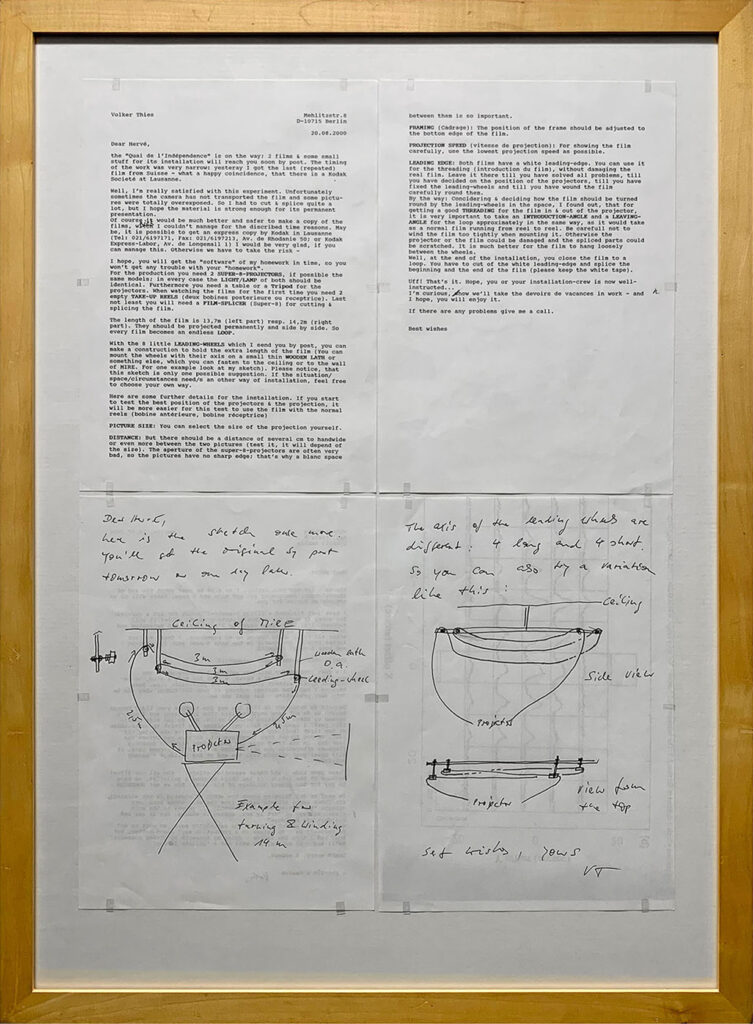 Volker Thies
Mehlitzstr.8
D-10715 Berlin
20.08.2000
Dear Hervé,
the "Quai de l'Indépendance" is on the way: 2 films & some small
stuff for its installation will reach you soon by post. The timing
of the work was very narrow: yesterey I got the last (repeated)
film from Suisse - what a happy coincidence, that there is a Kodak
Societé at Lausanne.
Well, I'm really satisfied with this experiment. Unfortunately
sometimes the camera has not transported the film and some pictu-
res were totally overexposed. So I had to cut & splice quite a
lot, but I hope the material is strong enough for its permanent
presentation.
Of course it would be much better and safer to make a copy of the
films, which I couldn't manage for the discribed time reasons. May
be, it is possible to get an express copy by Kodak in Lausanne
(Tel: 021/6197171, Fax: 021/6197213, Av. de Rhodanie 50; or Kodak
Express-Labor, Av. de Longemall 1) I would be very glad, if you
can manage this. Otherwise we have to take the risk -
I hope, you will get the "software" of my homework in time, so you
won't get any trouble with your "homework".
For the production you need 2 SUPER-8-PROJECTORS, if possible the
same models; in every case the LIGHT/LAMP of both should be
identical. Furthermore you need a table or a Tripod for the
projectors. When watching the films for the first time you need 2
empty TAKE-UP REELS (deux bobines posterieure ou receptrice). Last
not least you will need a FILM-SPLICER (Super-8) for cutting &
splicing the film.
The length of the film is 13,7m (left part) resp. 14,2m (right
part). They should be projected permanently and side by side. So
every film becomes an endless LOOP.
With the 8 little LEADING-WHEELS which I send you by post, you can
make a construction to hold the extra length of the film (You can
mount the wheels with their axis on a small thin WOODEN LATH or
something else, which you can fasten to the ceiling or to the wall
of MIRE. For one example look at my sketch). Please notice, that
this sketch is only one possible suggestion. If the situation/
space/circumstances need/s an other way of installation, feel free
to choose your own way.
Here are some further details for the installation. If you start
to test the best position of the projectors & the projection, it
will be more easier for this test to use the film with the normal
reels (bobine antérieure, bobine réceptrice)
PICTURE SIZE: You can select the size of the projection yourself.
DISTANCE: But there should be a distance of several cm to handwide
or even more between the two pictures (test it, it will depend of
the size). The aperture of the super-8-projectors are often very
bad, so the pictures have no sharp edge; that's why a blanc space
between them is so important.
FRAMING (Cadrage): The position of the frame should be adjusted to
the bottom edge of the film.
PROJECTION SPEED (vitesse de projection): For showing the film
carefully, use the lowest projection speed as possible.
LEADING EDGE: Both films have a white leading-edge. You can use it
for the threading (introduction du film), without damaging the
real film. Leave it there till you have solved all problems, till
you have decided on the position of the projectors, till you have
fixed the leading-wheels and till you have wound the film
carefully round them.
By the way: Concidering & deciding how the film should be turned
round by the leading-wheels in the space, I found out, that for
getting a good THREADING for the film in & out of the projector,
it is very important to take an INTRODUCTION-ANGLE and a LEAVING-
ANGLE for the loop approximately in the same way, as it would take
as a normal film running from reel to reel. Be carefull not to
wind the film too tightly when mounting it. Otherwise the
projector or the film could be damaged and the spliced parts could
be scratched. It is much better for the film to hang loosely
between the wheels.
Well, at the end of the installation, you close the film to a
loop. You have to cut of the white leading-edge and splice the
beginning and the end of the film (please keep the white tape).
Uff! That's it. Hope, you or your installation-crew is now well-
instructed...
I'm curious, how we'll take the devoirs de vacances in work - and
I hope, you will enjoy it.
If there are any problems give me a call.
Best wishes
Dear Hervé,
here is the sketch once more.
You'll get the original by post
tomorrow or one day later.
Ceiling of MIRE
3m
3m
3m
wooden lath
o.a.
leading-wheel
2,5m
2,5m
Projector
Example for
turning & winding
14 m
The axis of the leading wheels are
different: 4 long and 4 short.
So you can also try a variation
like this:
Ceiling
Side view
Projector
Projector
View from
the top
Best wishes, yours
VT